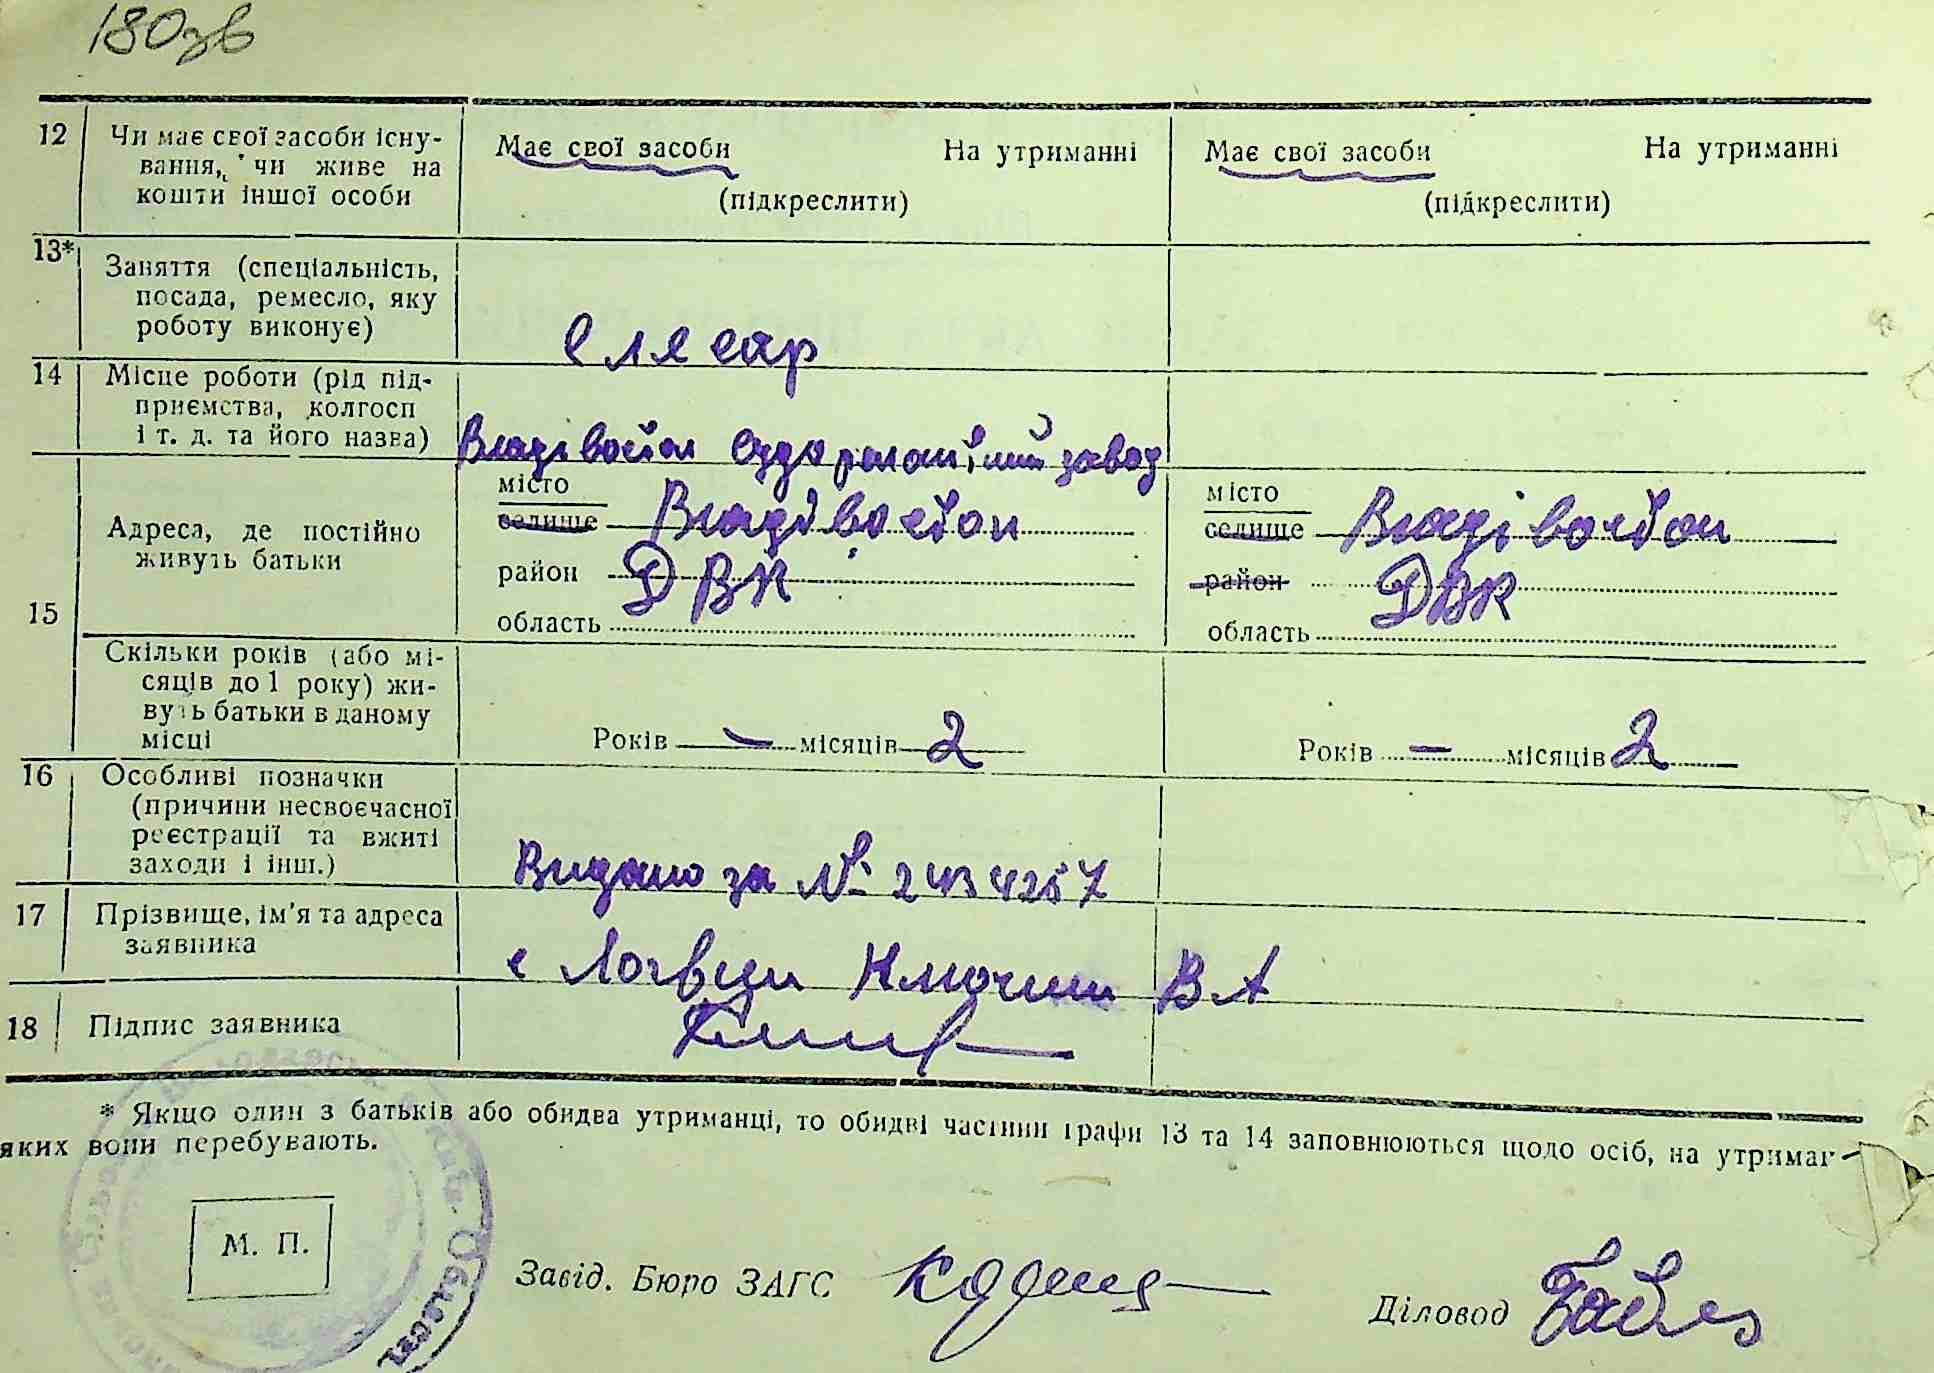 180зв
12 Чи має свої засоби існу-
вання, чи живе на
кошти іншої особи
Має свої засоби На утриманні
(підкреслити)
Має свої засоби На утриманні
(підкреслити)
13* Заняття (спеціальність,
посада, ремесло, яку
роботу виконує)
Слесар
14 Місце роботи (рід під-
приємства, колгосп
і т. д. та його назва)
Владівосток завод
15
Адреса, де постійно
живуть батьки
місто
селище Владівосток
район ДВК
область
місто
селище Владівосток
район ДВК
область
Скільки років (або мі-
сяців до 1 року) жи-
вуть батьки в даному
місці
Років — місяців 2
Років — місяців 2
16 Особливі позначки
(причини несвоєчасної
реєстрації та вжиті
заходи і інш.)
Видано за № 2434257
17 Прізвище, ім'я та адреса
заявника
с Логвин Ключник В А
18 Підпис заявника
* Якщо один з батьків або обидва утриманці, то обидві частини графи 13 та 14 заповнюються щодо осіб, на утриман-
яких вони перебувають.
М. П.
Завід. Бюро ЗАГС
Діловод